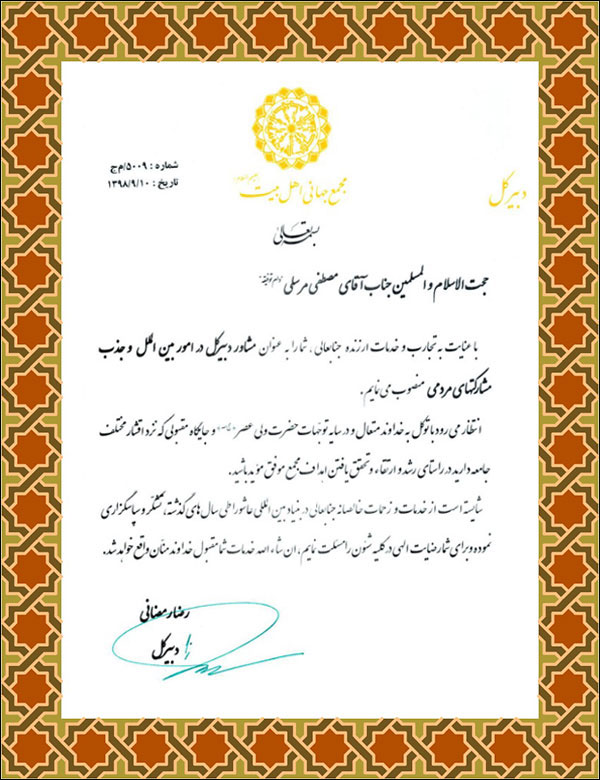 شماره : ۵۰۰۹/م ج
تاریخ : ۱۳۹۸/۹/۱۰
مجمع جهانی اهل بیت
دبیرکل
بسمه تعالی
حجت الاسلام و المسلمین جناب آقای مصطفی مرسلی
با عنایت به تجارب و خدمات ارزنده جنابعالی ، شما را به عنوان مشاور دبیرکل در امور بین الملل و جذب
مشارکتهای مردمی منصوب می نمایم .
انتظار می رود با توکل به خداوند متعال و در سایه توجهات حضرت ولی عصر و جایگاه مقبولی که نزد اقشار مختلف
جامعه دارید در راستای رشد و ارتقاء و تحقق یافتن اهداف مجمع موفق و مؤید باشید .
شایسته است از خدمات و زحمات خالصانه جنابعالی در بنیاد بین المللی عاشورا طی سال های گذشته ، تشکر و سپاسگزاری
نموده و برای شما رضایت الهی در کلیه شئون را مسئلت نمایم ، ان شاء الله خدمات شما مقبول خداوند منان واقع خواهد شد .
رضا رمضانی
دبیرکل